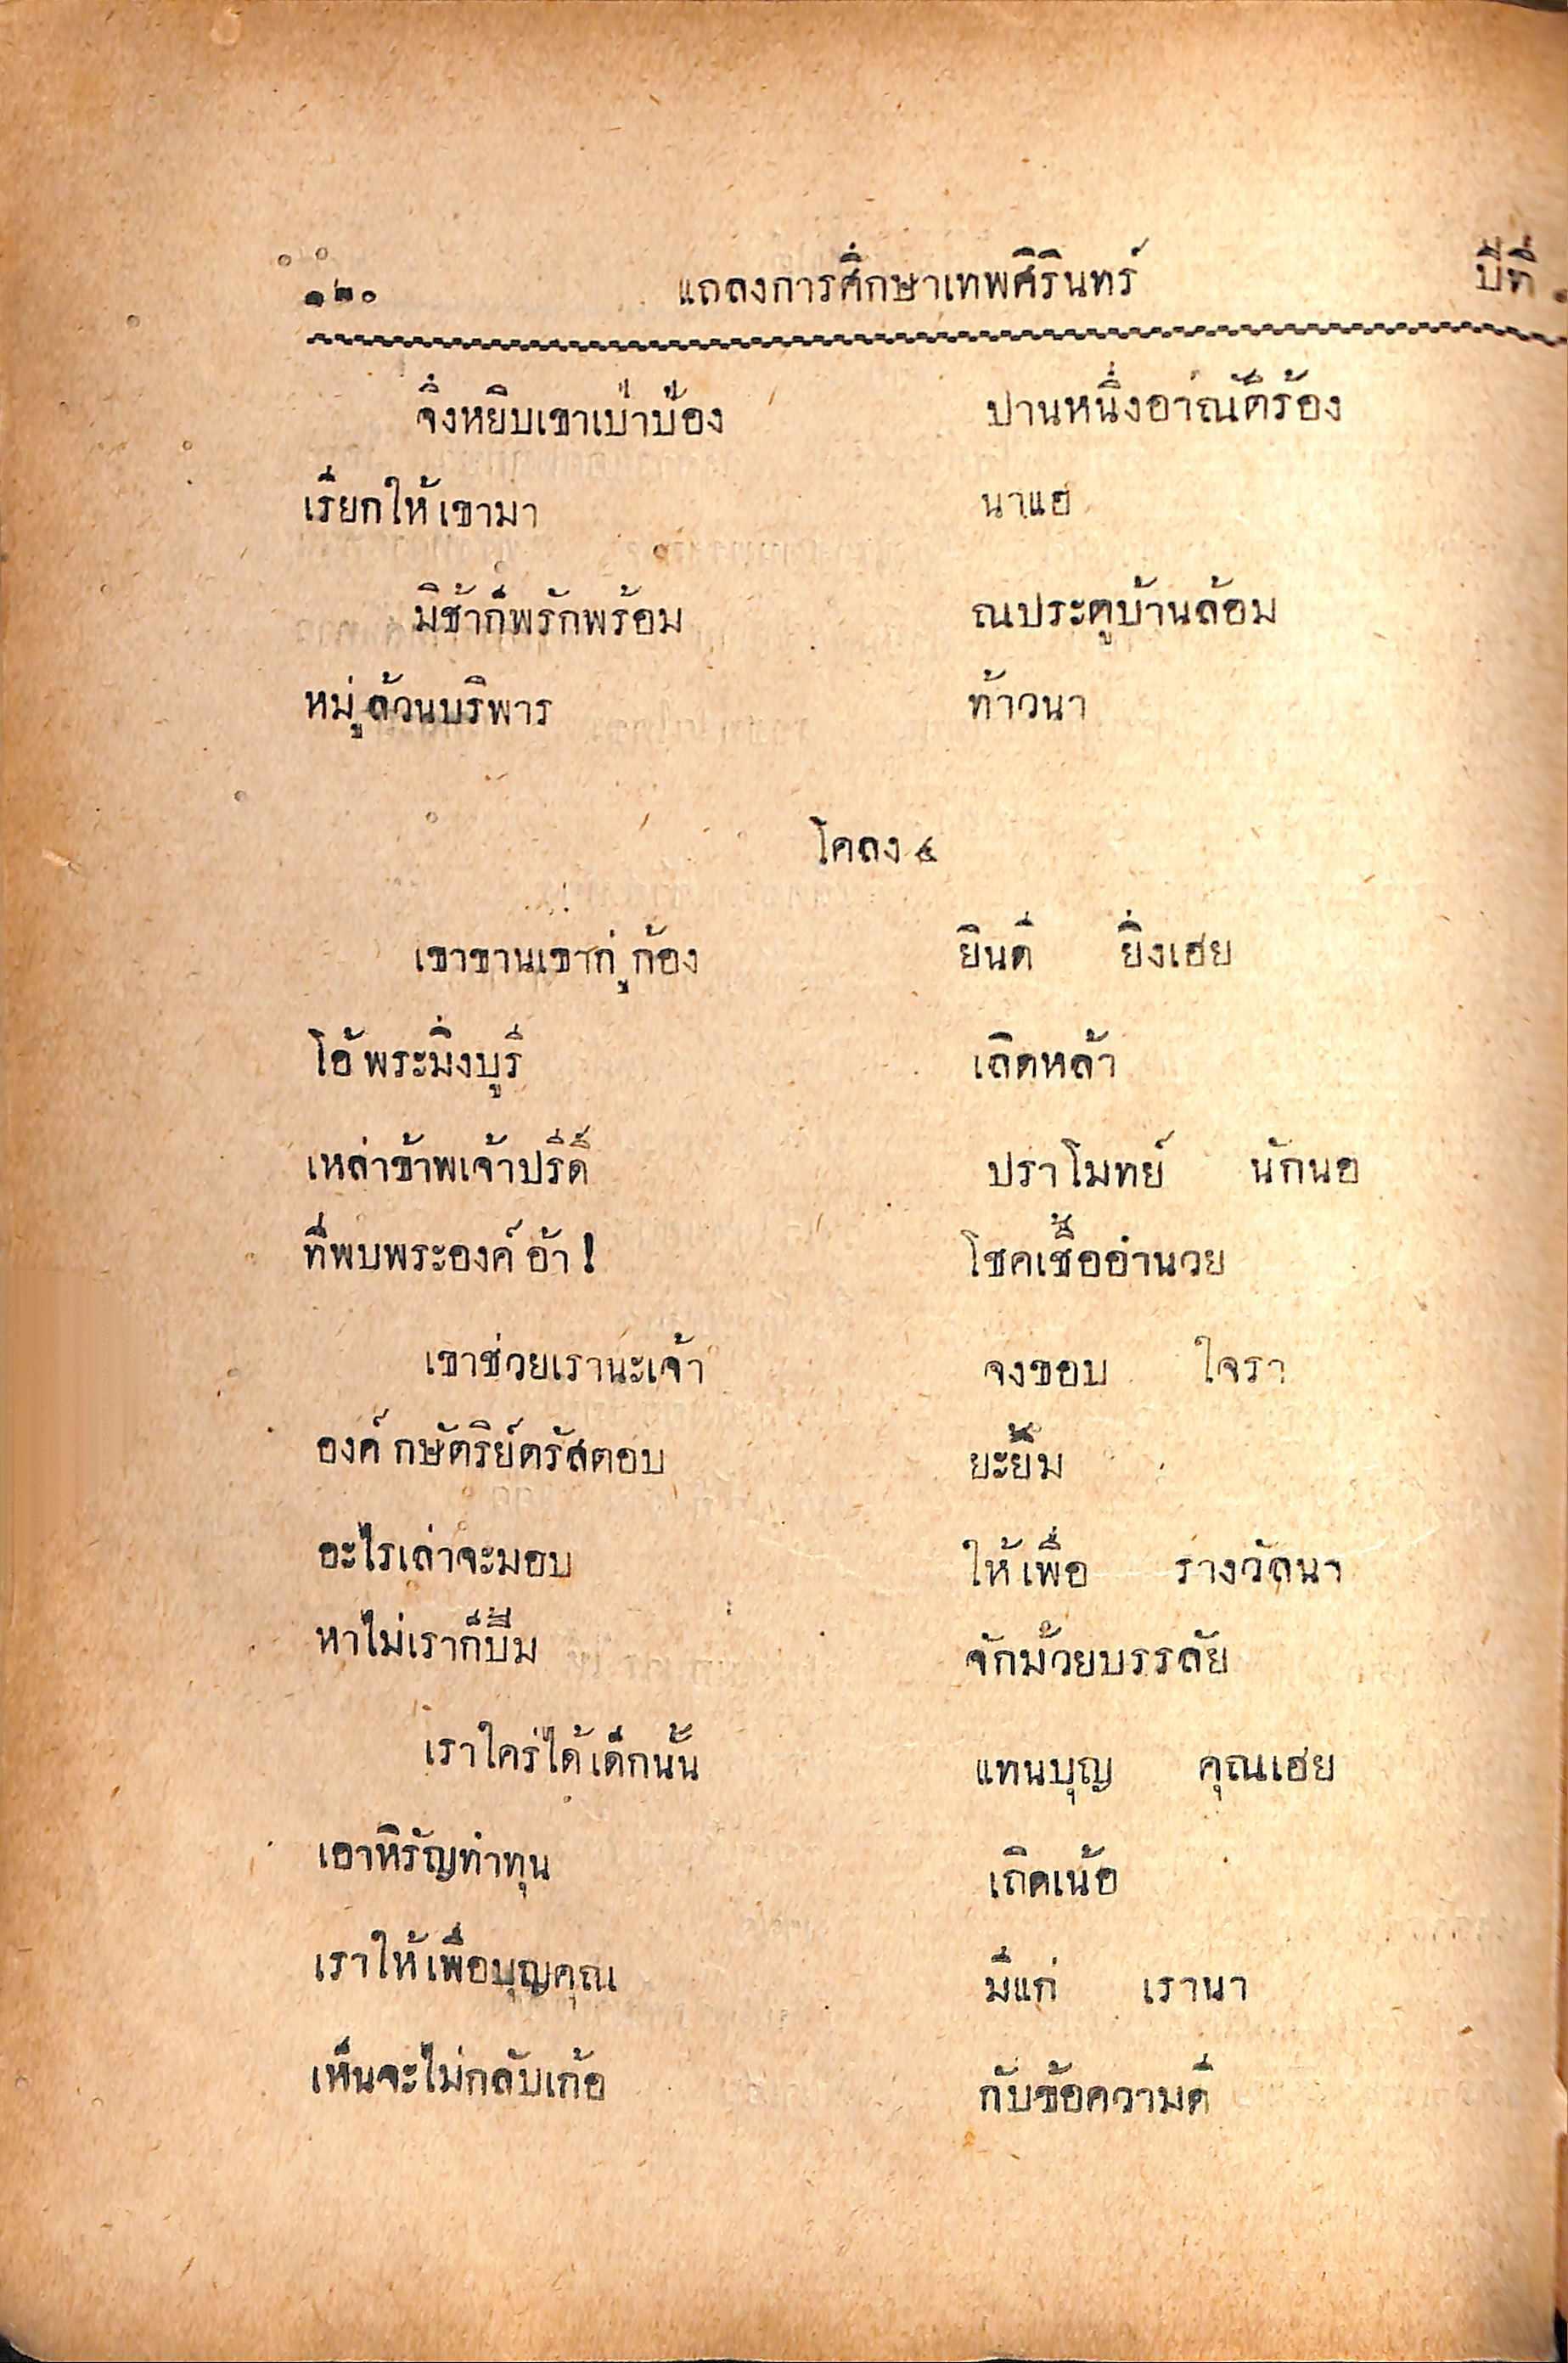 ๑๒๐ แถลงการศึกษาเทพศิรินทร์ ปีที่
จึ่งหยิบเขาเป่าป้อง ปานหนึ่งอาณัติร้อง
เรียกให้เขามา นาแฮ
มิช้าก็พรักพร้อม ณประตูบ้านล้อม
หมู่ล้วนบริพาร ท้าวนา
โคลง ๔
เขาขานเขากู่ก้อง ยินดี ยิ่งเฮย
โอ้พระมิ่งบูรี เลิดหล้า
เหล่าข้าพเจ้าปรีดิ์ ปราโมทย์ นักนอ
ที่พบพระองค์ อ้า! โชคเชื้ออำนวย
เขาช่วยเรานะเจ้า จงขอบ ใจรา
องค์กษัตริย์ตรัสตอบ ยะยิ้ม
อะไรเล่าจะมอบ ให้เพื่อ รางวัลนา
หาไม่เราก็บี้ม จักม้วยบรรลัย
เราใคร่ได้เด็กนั้น แทนบุญ คุณเฮย
เอาหิรัญทำทุน เถิดเน้อ
เราให้เพื่อบุญคุณ มีแก่ เรานา
เห็นจะไม่กลับเก้อ กับข้อความดี